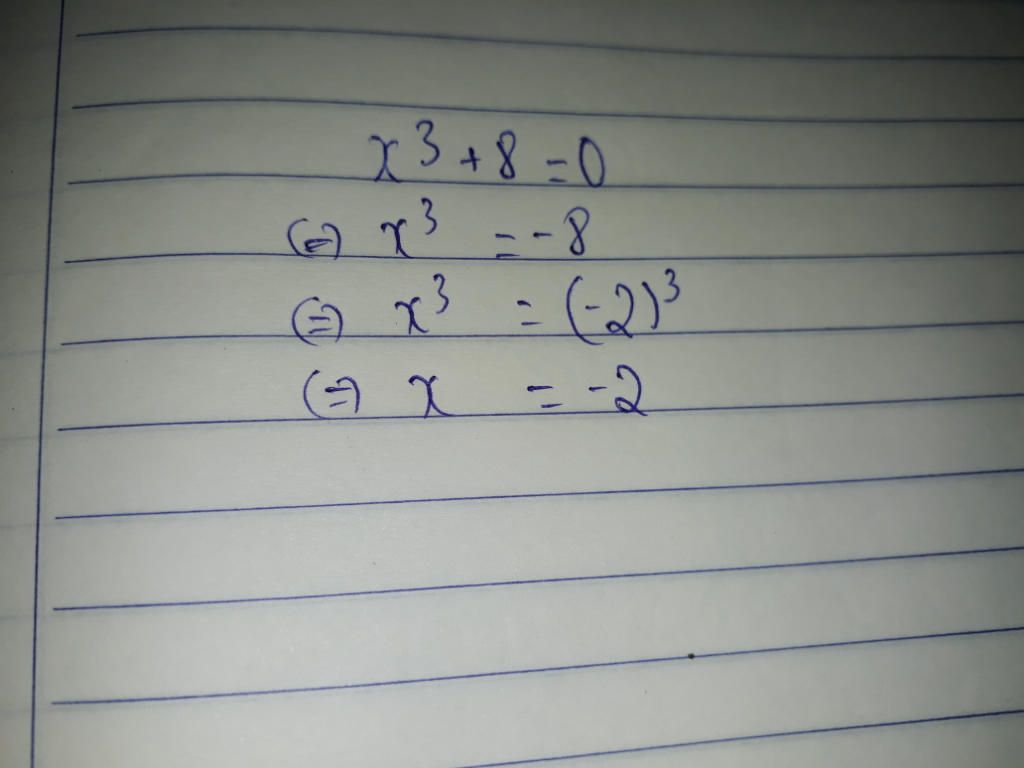 x³ + 8 = 0
(=) x³ = -8
(=) x³ = (-2)³
(=) x = -2